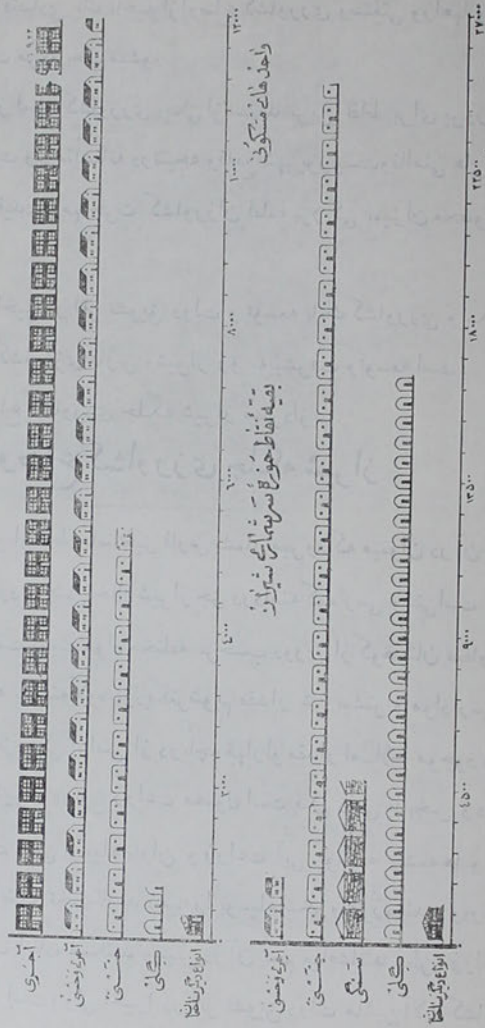 آجری
آجری و خشتی
خشتی
گلی
۲۰۰۰
۴۰۰۰
۶۰۰۰
۸۰۰۰
۱۰۰۰۰
۱۲۰۰۰
واحد های مسکونی
بقیه نقاط حوزه سرشماری شیراز
آجری و خشتی
خشتی
سنگی
گلی
۴۵۰۰
۹۰۰۰
۱۳۵۰۰
۱۸۰۰۰
۲۲۵۰۰
۲۷۰۰۰